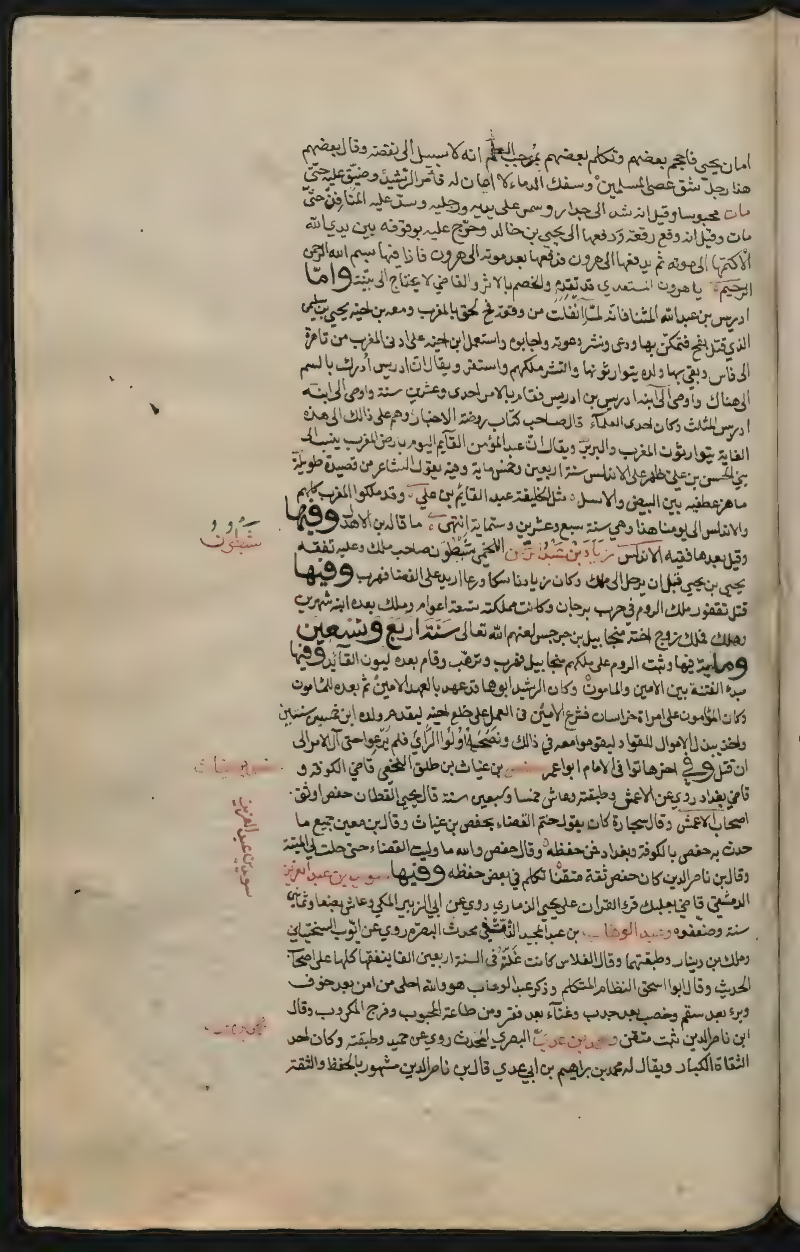 امان يحيى فاحجم بعضهم وتكلم بعضهم بموجب العلم انه لا سبيل الى نقضه وقال بعضهم
هذا رجل شق عصى المسلمين وسفك الدماء لا امان له فامر الرشيد وضيق عليه حتى
مات محبوسا وقيل انه شد الى جدار وسمر على يديه ورجليه وسد عليه المنافذ حتى
مات وقيل انه وقع رقعة ودفعها الى يحيى بن خالد وحرج عليه بوقوفه بين يدي الله
الا كتمها الى موته ثم يدفعها الى هرون فدفعها بعد موته الى هرون فاذا فيها بسم الله الرحمن
الرحيم يا هرون المستعدي قد تقدم والخصم بالاثر والقاضي لا يحتاج الى بينة واما
ادريس بن عبد الله المثنا فانه لما انفلت من وقعة فخ لحق بالمغرب ومعه بن اخيه يحيى بن سليمان
الذي قتل بفخ فتمكن بها ودعى ونشر دعوته واجابوه واستعمل ابن اخيه على ادنى المغرب من تاهرة
الى فاس وبقي بها ولده يتوارثونها وانتشر ملكهم واستقر ويقال ان ادريس ادرك بالسم
الى هناك واوصى الى ابنه ادريس بن ادريس فقام بالامر احدى وعشرين سنة واوصى الى ابنه
ادريس المثلث وكان احدى العلماء قال صاحب كتاب روضة الاخبار وهم على ذلك الى هذه
الغاية يتوارثون المغرب والبربر ويقال ان عبد المؤمن القايم اليوم بارض المغرب ينسب الى
بني الحسن بن علي ظهر على الاندلس سنة اربعين وخمس ماية وفيه يقول الشاعر من قصيدة طويلة
ما هز عطفيه بين البيض والاسل مثل الخليفة عبد القايم بن علي وقد ملكوا المغرب كلهم
والاندلس الى يومنا هذا وهي سنة سبع وعشرين وستماية انتهى ما قاله بن الاهدل وفيها
وقيل بعدها فقيه الاندلس زياد بن عبد الرحمن اللخمي شبطون صاحب ملك وعليه تفقه
شبطون
يحيى بن يحيى قبل ان يرحل الى ملك وكان زياد ناسكا ورعا اريد على القضا فهرب وفيها
قتل نقفور ملك الروم في حرب برجان وكانت مملكته تسعة اعوام وملك بعده ابنه شهرين
وهلك فملك زوج اخته ميخاييل بن جرجس لعنهم الله تعالى سنة اربع وتسعين
وماية فيها وثبت الروم على ملكهم ميخاييل فهرب وترهب وقام بعده ليون القايد وفيها
مبدء الفتنة بين الامين والمامون وكان الرشيد ابوهما قد عهد بالعهد للامين ثم بعده للمامون
وكان المؤمون على امراة خراسان فشرع الامين في العمل على خلع اخيه ليقدم ولده ابن خمس سنين
واخذ يبذل الاموال للقواد ليقوموا معه في ذلك ونصحه اولوا الراي فلم يرعوا حتى آل الامر الى
ان قتل وفي اخرها توفى الامام ابو عمر حفص بن غياث بن طلق النخعي قاضي الكوفة و
قاضي بغداد روى عن الاعمش وطبقته وعاش خمسا وسبعين سنة قال يحيى القطان حفص اوثق
اصحاب الاعمش وقال سجادة كان يقول ختم القضاء بحفص بن غياث وقال بن معين جميع ما
حدث به حفص بالكوفة وبغداد فمن حفظه وقال حفص والله ما وليت القضاء حتى حلت لي الميتة
وقال بن ناصر الدين كان حفص ثقة متقنا تكلم في بعض حفظه وفيها سويد بن عبد العزيز
سويد بن عبد العزيز
الدمشقي قاضي بعلبك قرء القران على يحيى الذماري روى عن ابي الزبير المكي وعاش بضعا وثمانين
سنة وضعفوه وعبد الوهاب بن عبد المجيد الثقفي محدث البصرة روى عن ايوب السختياني
وملك بن دينار وطبقتهما وقال الفلاس كانت غلته في السنة اربعين الفا ينفقها كلها على اصحاب
الحديث وقال ابو اسحق النظام المتكلم وذكر عبد الوهاب هو والله احلى من امن بعد خوف
وبرء بعد سقم وخصب بعد جدب وغناء بعد فقر ومن طاعة المحبوب وفرج المكروب وقال
ابن ناصر الدين ثبت متقن ومحمد بن عدي البصري المحدث روى عن حميد وطبقته وكان احد
الثقاة الكبار ويقال له محمد بن ابراهيم بن ابي عدي قال بن ناصر الدين مشهور بالحفظ والثقة